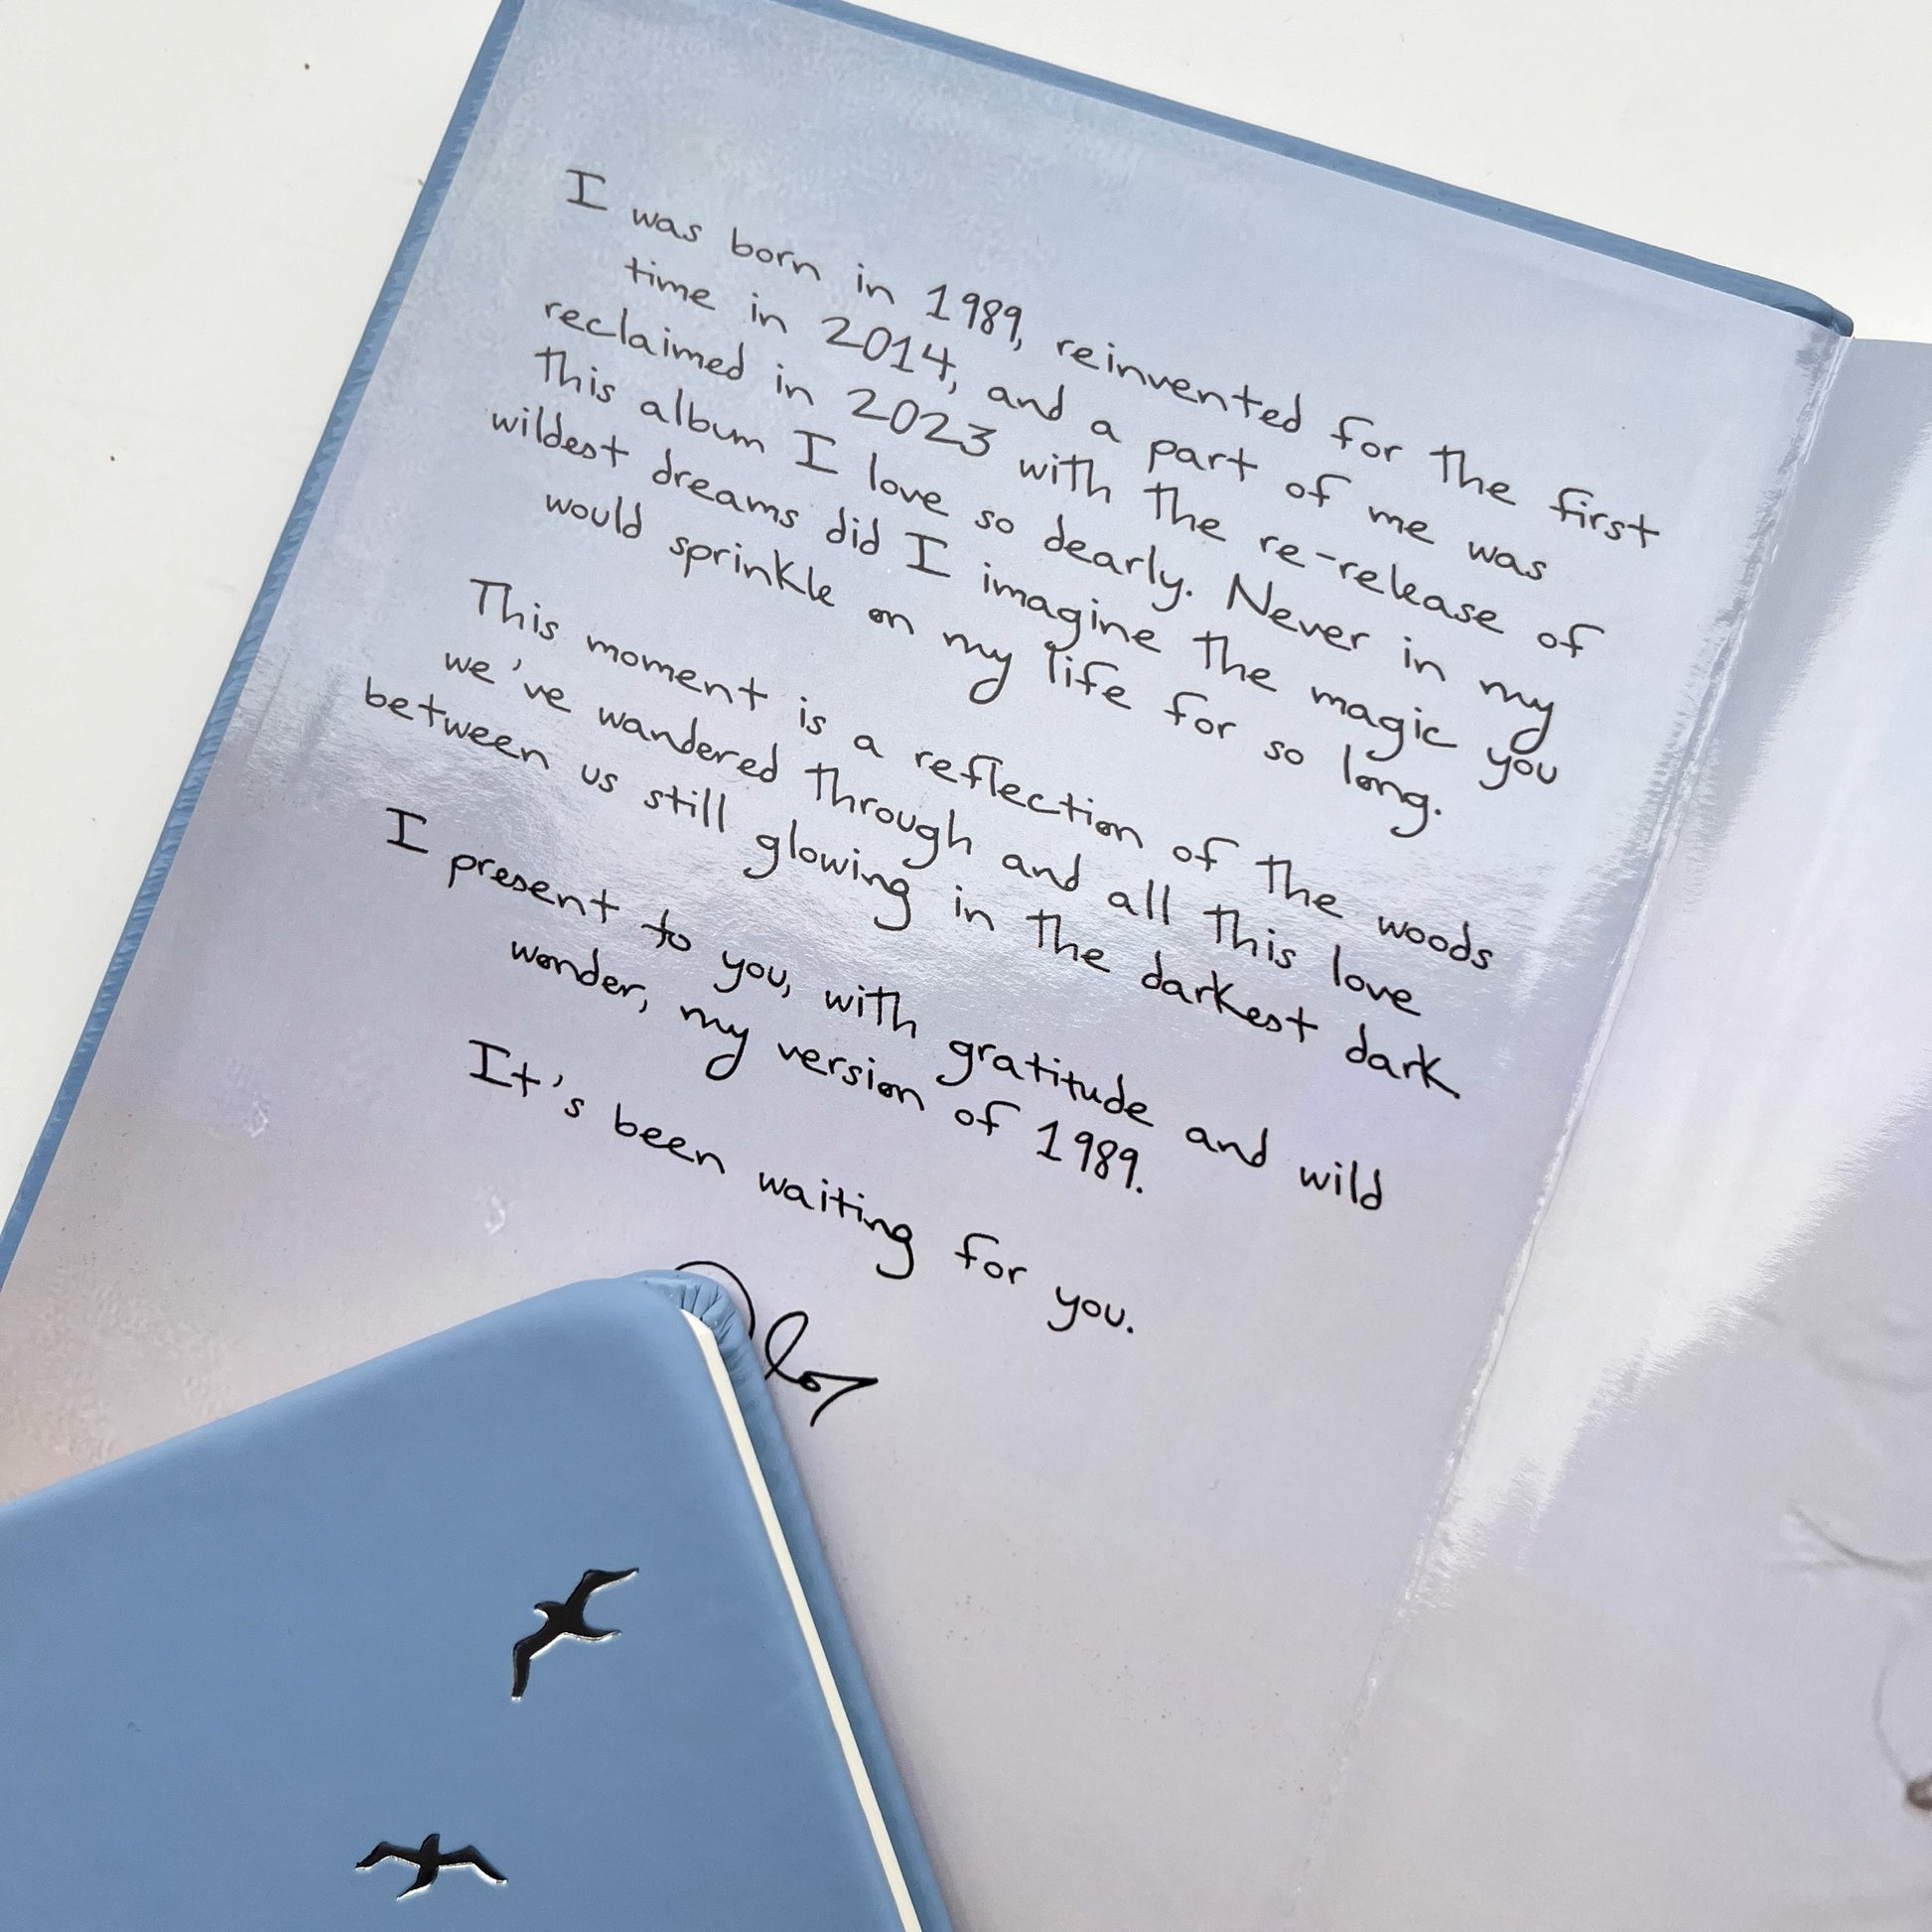 I was born in 1989, reinvented for the first
time in 2014, and a part of me was
reclaimed in 2023 with the re-release of
this album I love so dearly. Never in my
wildest dreams did I imagine the magic you
would sprinkle on my life for so long.
This moment is a reflection of the woods
we've wandered through and all this love
between us still glowing in the darkest dark
I present to you, with gratitude and wild
wonder, my version of 1989.
It's been waiting for you.